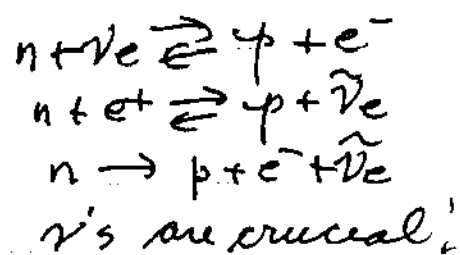 n + νe ⇌ p + e⁻
n + e⁺ ⇌ p + ν̃e
n → p + e⁻ + ν̃e
ν's are crucial!